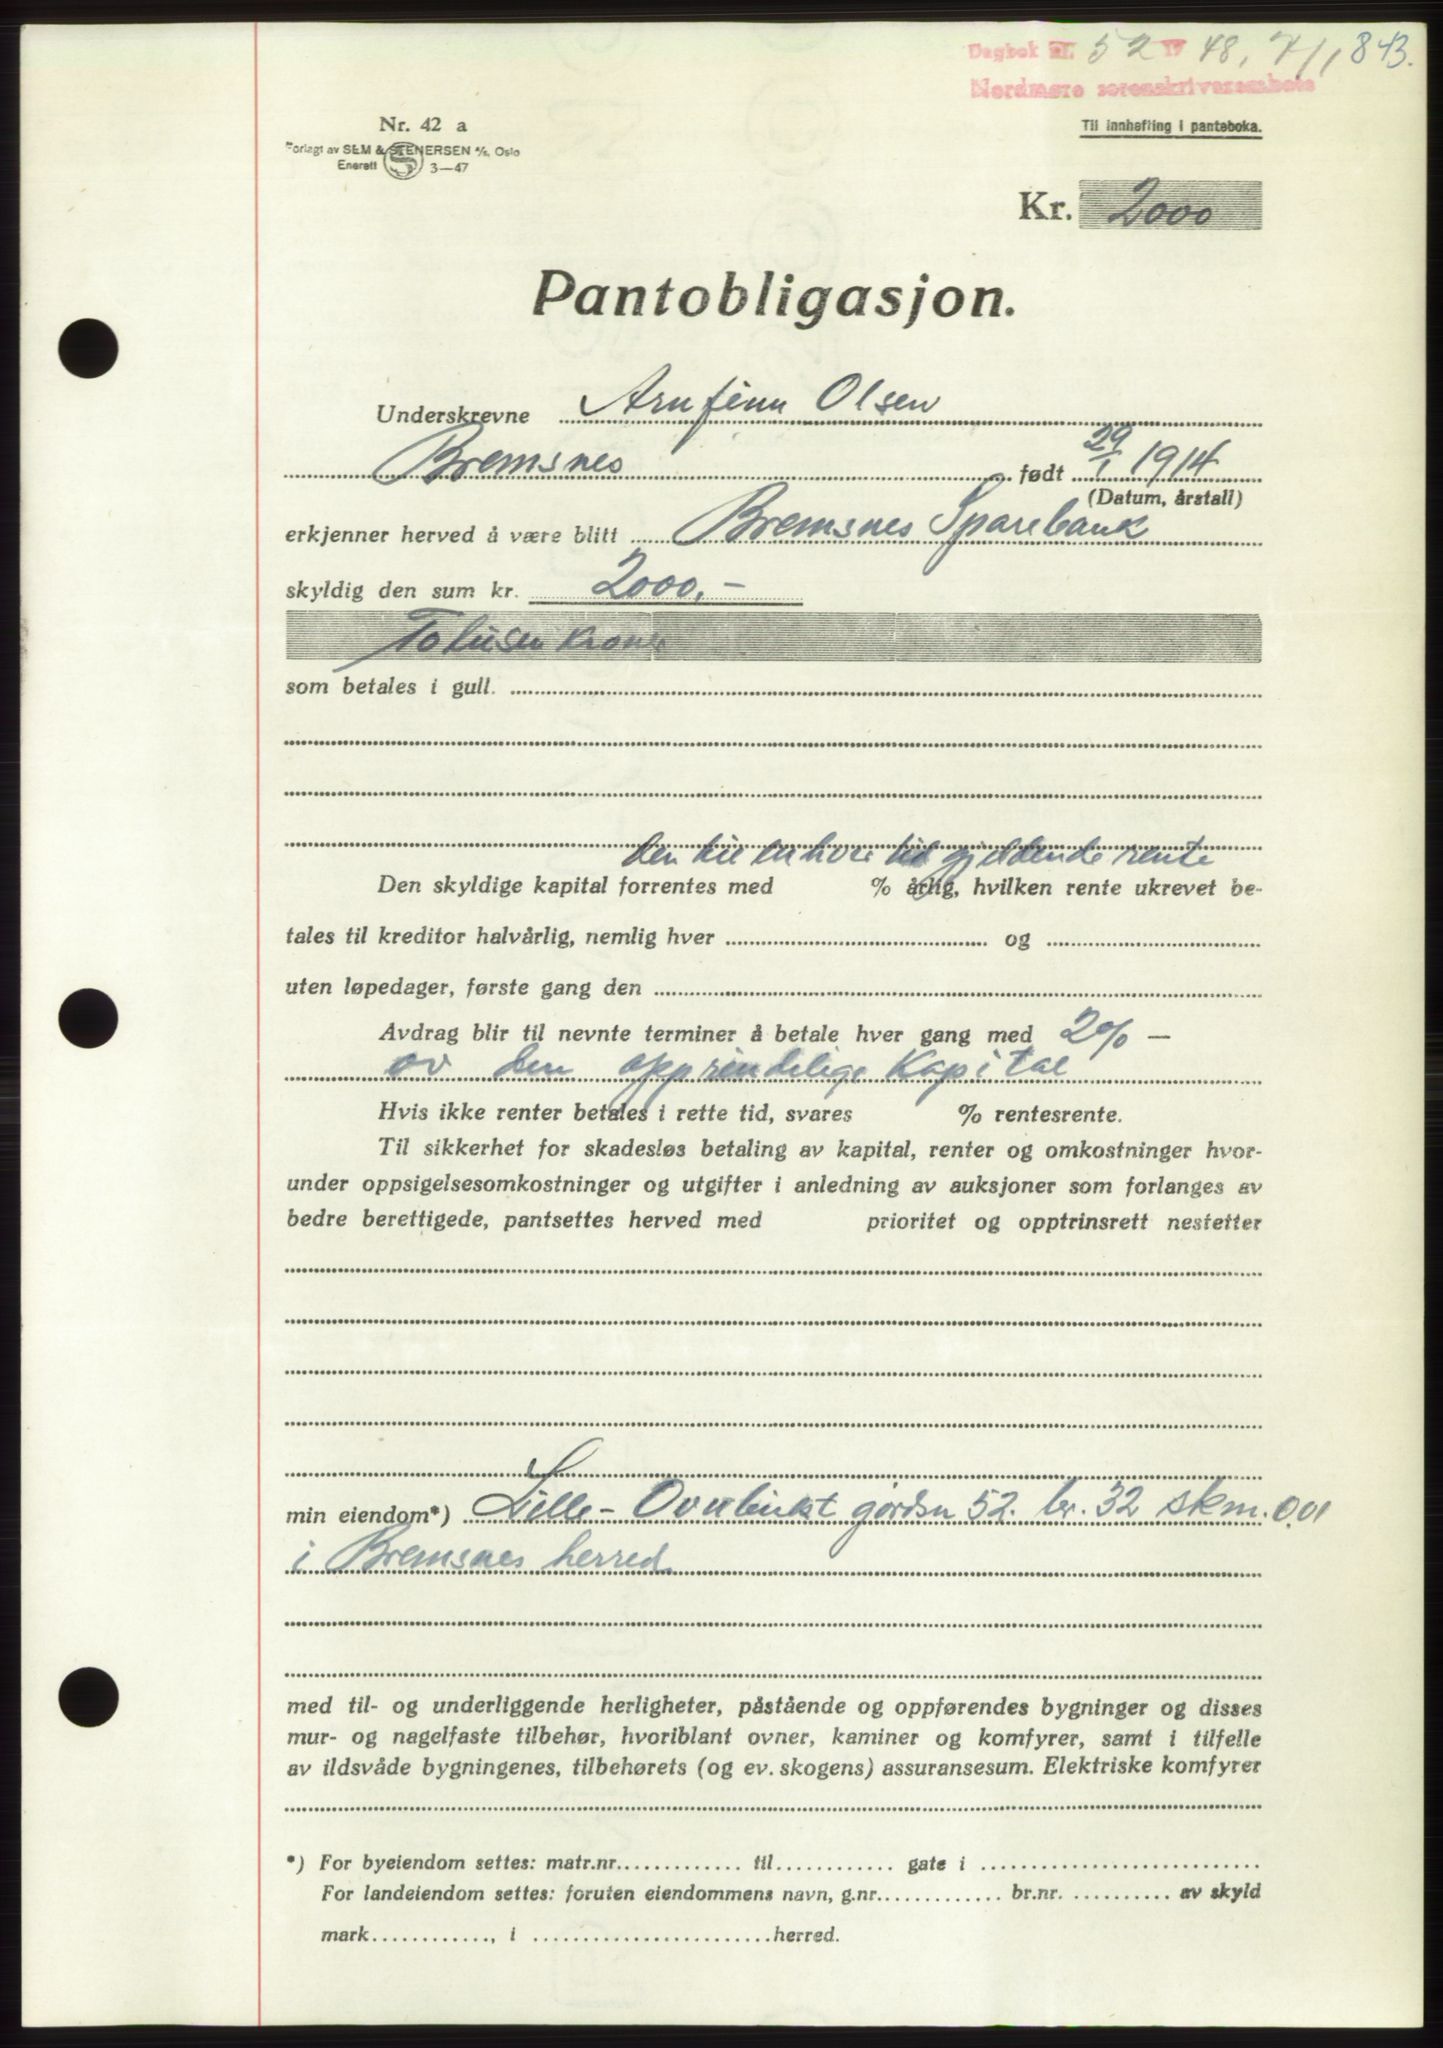 Dagbok nr. 52 19 48, 7/1 843.
Nordmøre sorenskriverembete
Nr. 42 a
Forlagt av SEM & STENERSEN A/S, Oslo
Enerett 3—47
Til innhefting i panteboka.
Kr. 2000
Pantobligasjon.
Underskrevne Arnfinn Olsen
Bremsnes født 29/1 1914
(Datum, årstall)
erkjenner herved å være blitt Bremsnes Sparebank
skyldig den sum kr. 2000.-
Totusen kroner
som betales i gull.
den til enhver tid gjeldende rente
Den skyldige kapital forrentes med % årlig, hvilken rente ukrevet be-
tales til kreditor halvårlig, nemlig hver og
uten løpedager, første gang den
Avdrag blir til nevnte terminer å betale hver gang med 2% —
av den opprindelige Kapital
Hvis ikke renter betales i rette tid, svares % rentesrente.
Til sikkerhet for skadesløs betaling av kapital, renter og omkostninger hvor-
under oppsigelsesomkostninger og utgifter i anledning av auksjoner som forlanges av
bedre berettigede, pantsettes herved med prioritet og opptrinsrett nestetter
min eiendom*) Lille- gårdsn 52. br. 32 skm. 0,01
i Bremsnes herred
med til- og underliggende herligheter, påstående og oppførendes bygninger og disses
mur- og nagelfaste tilbehør, hvoriblant ovner, kaminer og komfyrer, samt i tilfelle
av ildsvåde bygningenes, tilbehørets (og ev. skogens) assuransesum. Elektriske komfyrer
*) For byeiendom settes: matr.nr. til gate i
For landeiendom settes: foruten eiendommens navn, g.nr. br.nr. av skyld
mark , i herred.